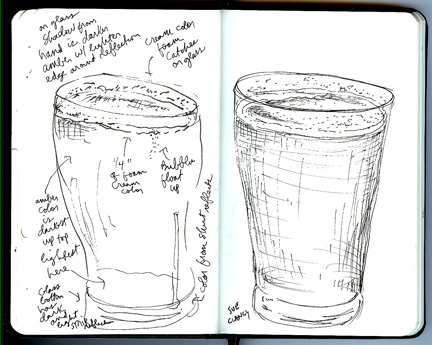 on glass
shadow from
hand is darker
amber w/ lighter
edge around reflection
cream color
foam
catches
on glass
1/4"
of foam
cream
color
Bubbles
float
up
amber
color
is
darkest
up top
lightest
here
Glass
bottom
has
dark
amber
reflection
color from shirt reflects
SUE
CLANCY